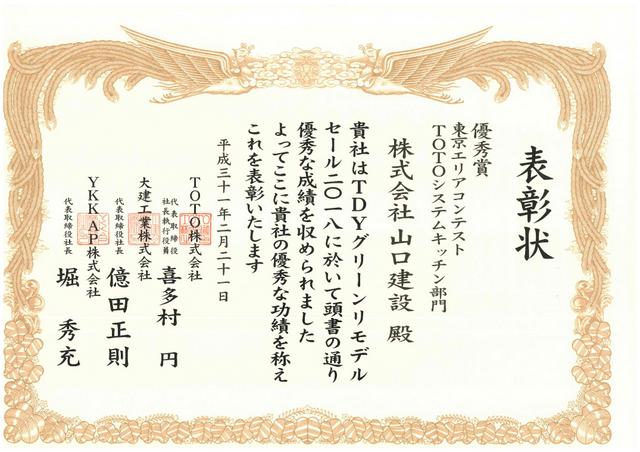 表彰状
優秀賞
東京エリアコンテスト
TOTOシステムキッチン部門
株式会社 山口建設 殿
貴社はTDYグリーンリモデル
セール二〇一八に於いて頭書の通り
優秀な成績を収められました
よってここに貴社の優秀な功績を称え
これを表彰いたします
平成三十一年二月二十一日
TOTO株式会社
代表取締役
社長執行役員
喜多村 円
大建工業株式会社
代表取締役社長
億田正則
YKK AP株式会社
代表取締役社長
堀 秀充